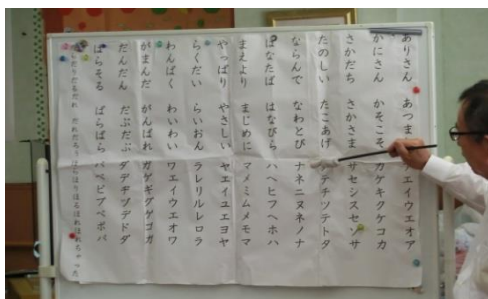 ありさん あつま エイウエオア
かにさん かそこそ カケキクケコカ
さかだち さかさま サセシスセソサ
たのしい たこあげ テチツテトタ
ならんで なわとび ナネニヌネノナ
はなたば はなびら ハヘヒフヘホハ
まえより まじめに マメミムメモマ
やっぱり やさしい ヤエイユエヨヤ
らくだい らいおん ラレリルレロラ
わんぱく わいわい ワエイウエオワ
がまんだ がんばれ ガゲギグゲゴガ
だんだん だぶだぶ ダデヂヅデドダ
ぱらそる ぱらぱら パペピプペポパ